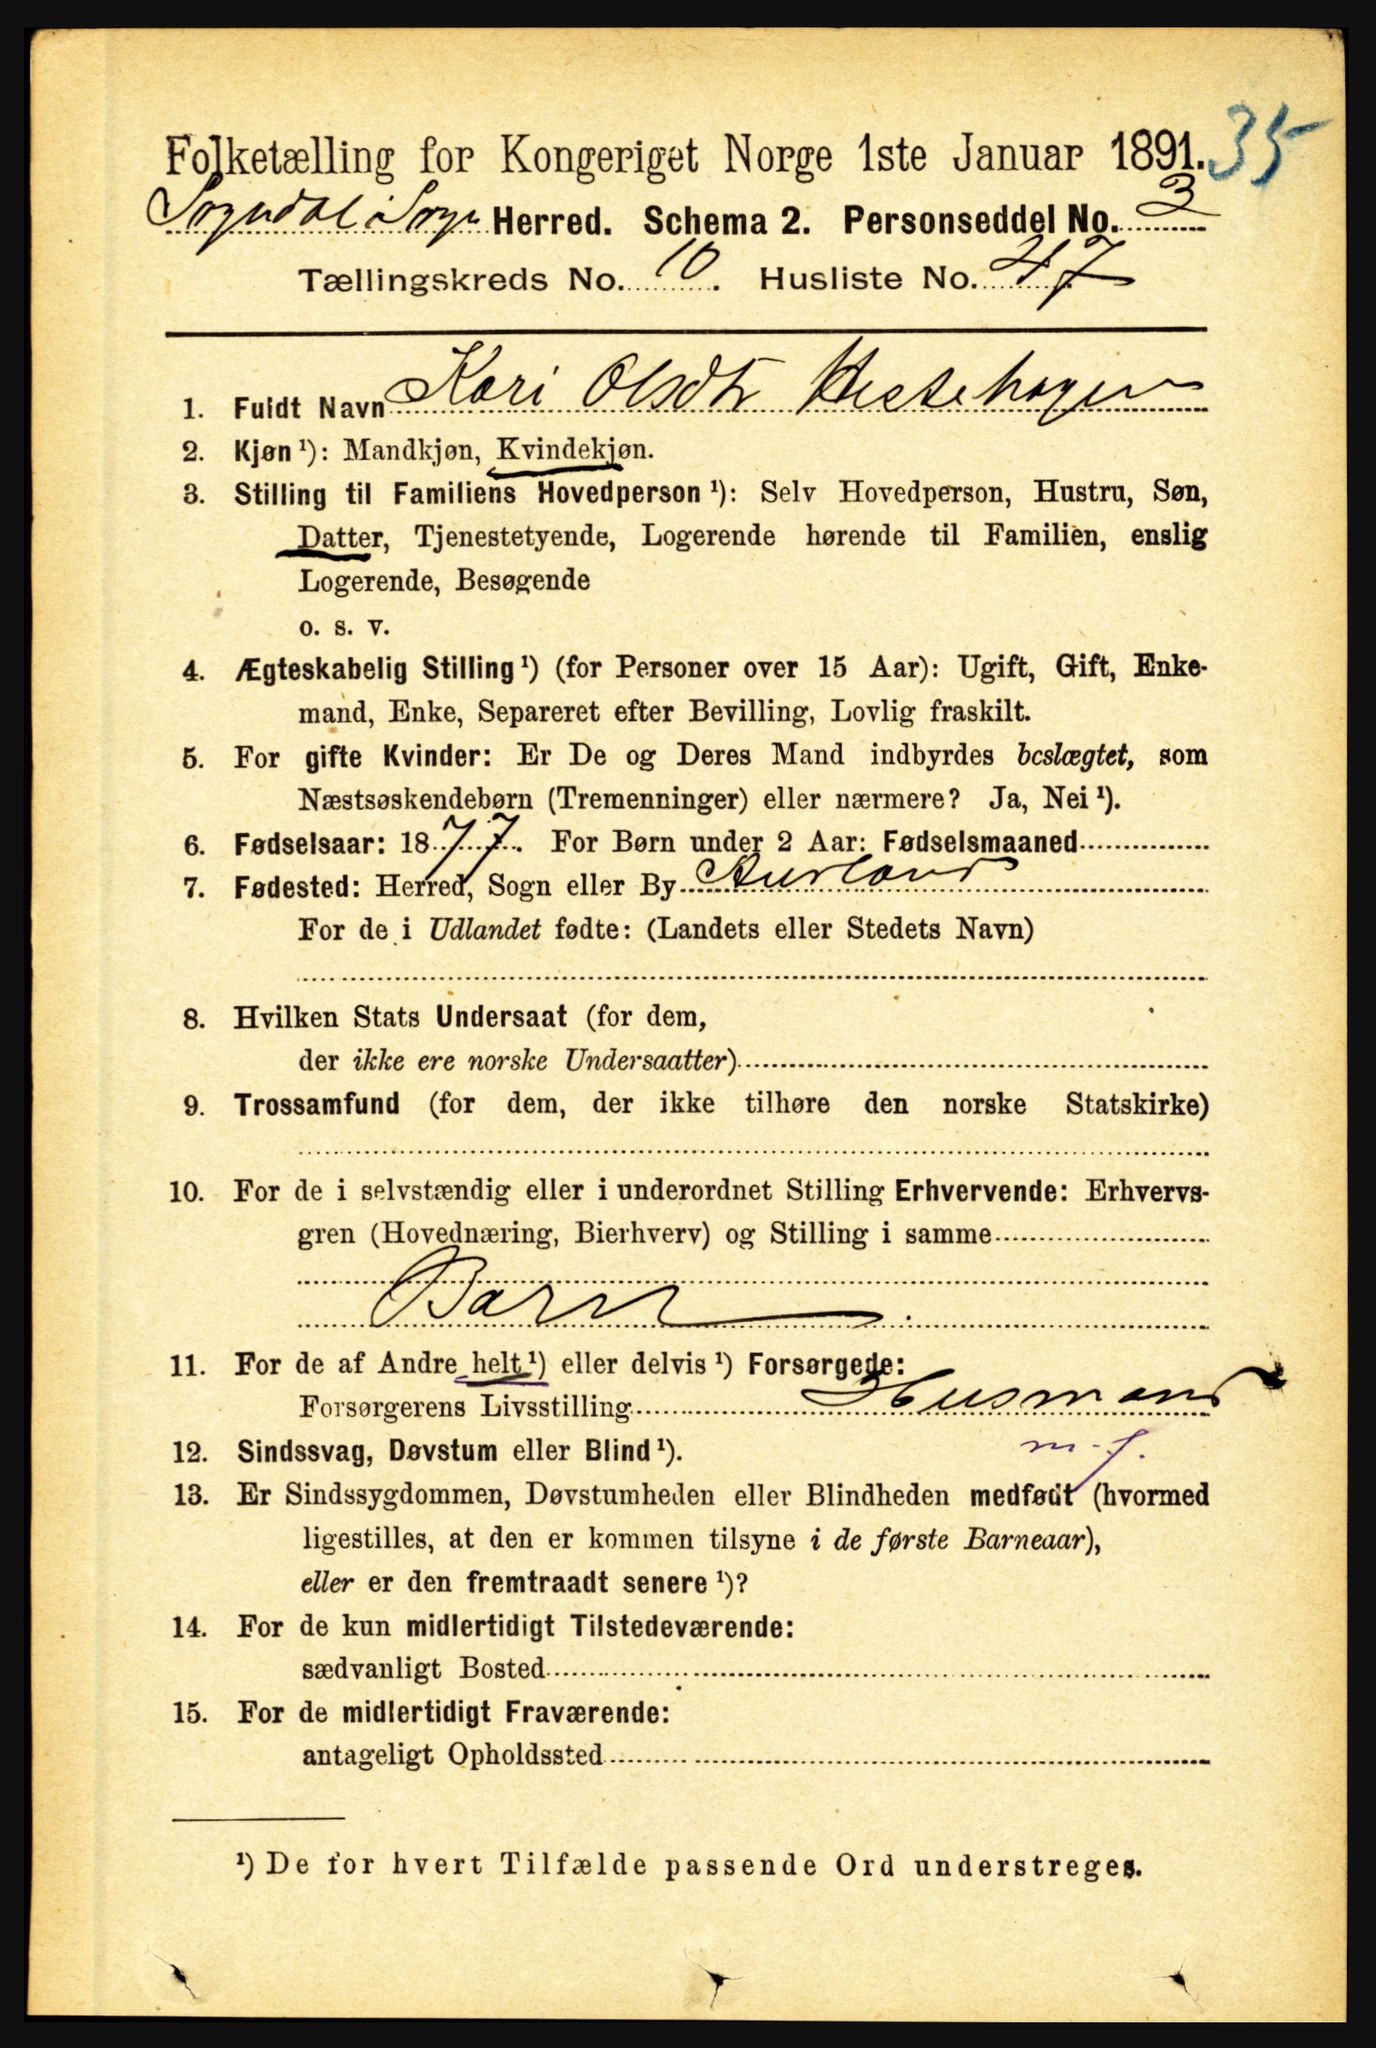 35
Folketælling for Kongeriget Norge 1ste Januar 1891.
Sogndal i Sogn Herred. Schema 2. Personseddel No. 3
Tællingskreds No. 10. Husliste No. 47
1. Fuldt Navn Kari Olsdtr Hestehagen
2. Kjøn¹): Mandkjøn, Kvindekjøn.
3. Stilling til Familiens Hovedperson¹): Selv Hovedperson, Hustru, Søn,
Datter, Tjenestetyende, Logerende hørende til Familien, enslig
Logerende, Besøgende
o. s. v.
4. Ægteskabelig Stilling¹) (for Personer over 15 Aar): Ugift, Gift, Enke-
mand, Enke, Separeret efter Bevilling, Lovlig fraskilt.
5. For gifte Kvinder: Er De og Deres Mand indbyrdes beslægtet, som
Næstsøskendebørn (Tremenninger) eller nærmere? Ja, Nei¹).
6. Fødselsaar: 1877. For Børn under 2 Aar: Fødselsmaaned
7. Fødested: Herred, Sogn eller By Aurland
For de i Udlandet fødte: (Landets eller Stedets Navn)
8. Hvilken Stats Undersaat (for dem,
der ikke ere norske Undersaatter)
9. Trossamfund (for dem, der ikke tilhøre den norske Statskirke)
10. For de i selvstændig eller i underordnet Stilling Erhvervende: Erhvervs-
gren (Hovednæring, Bierhverv) og Stilling i samme
Barn
11. For de af Andre helt¹) eller delvis¹) Forsørgede:
Forsørgerens Livsstilling Husmand
m. j.
12. Sindssvag, Døvstum eller Blind¹).
13. Er Sindssygdommen, Døvstumheden eller Blindheden medfødt (hvormed
ligestilles, at den er kommen tilsyne i de første Barneaar),
eller er den fremtraadt senere¹)?
14. For de kun midlertidigt Tilstedeværende:
sædvanligt Bosted
15. For de midlertidigt Fraværende:
antageligt Opholdssted
¹) De for hvert Tilfælde passende Ord understreges.